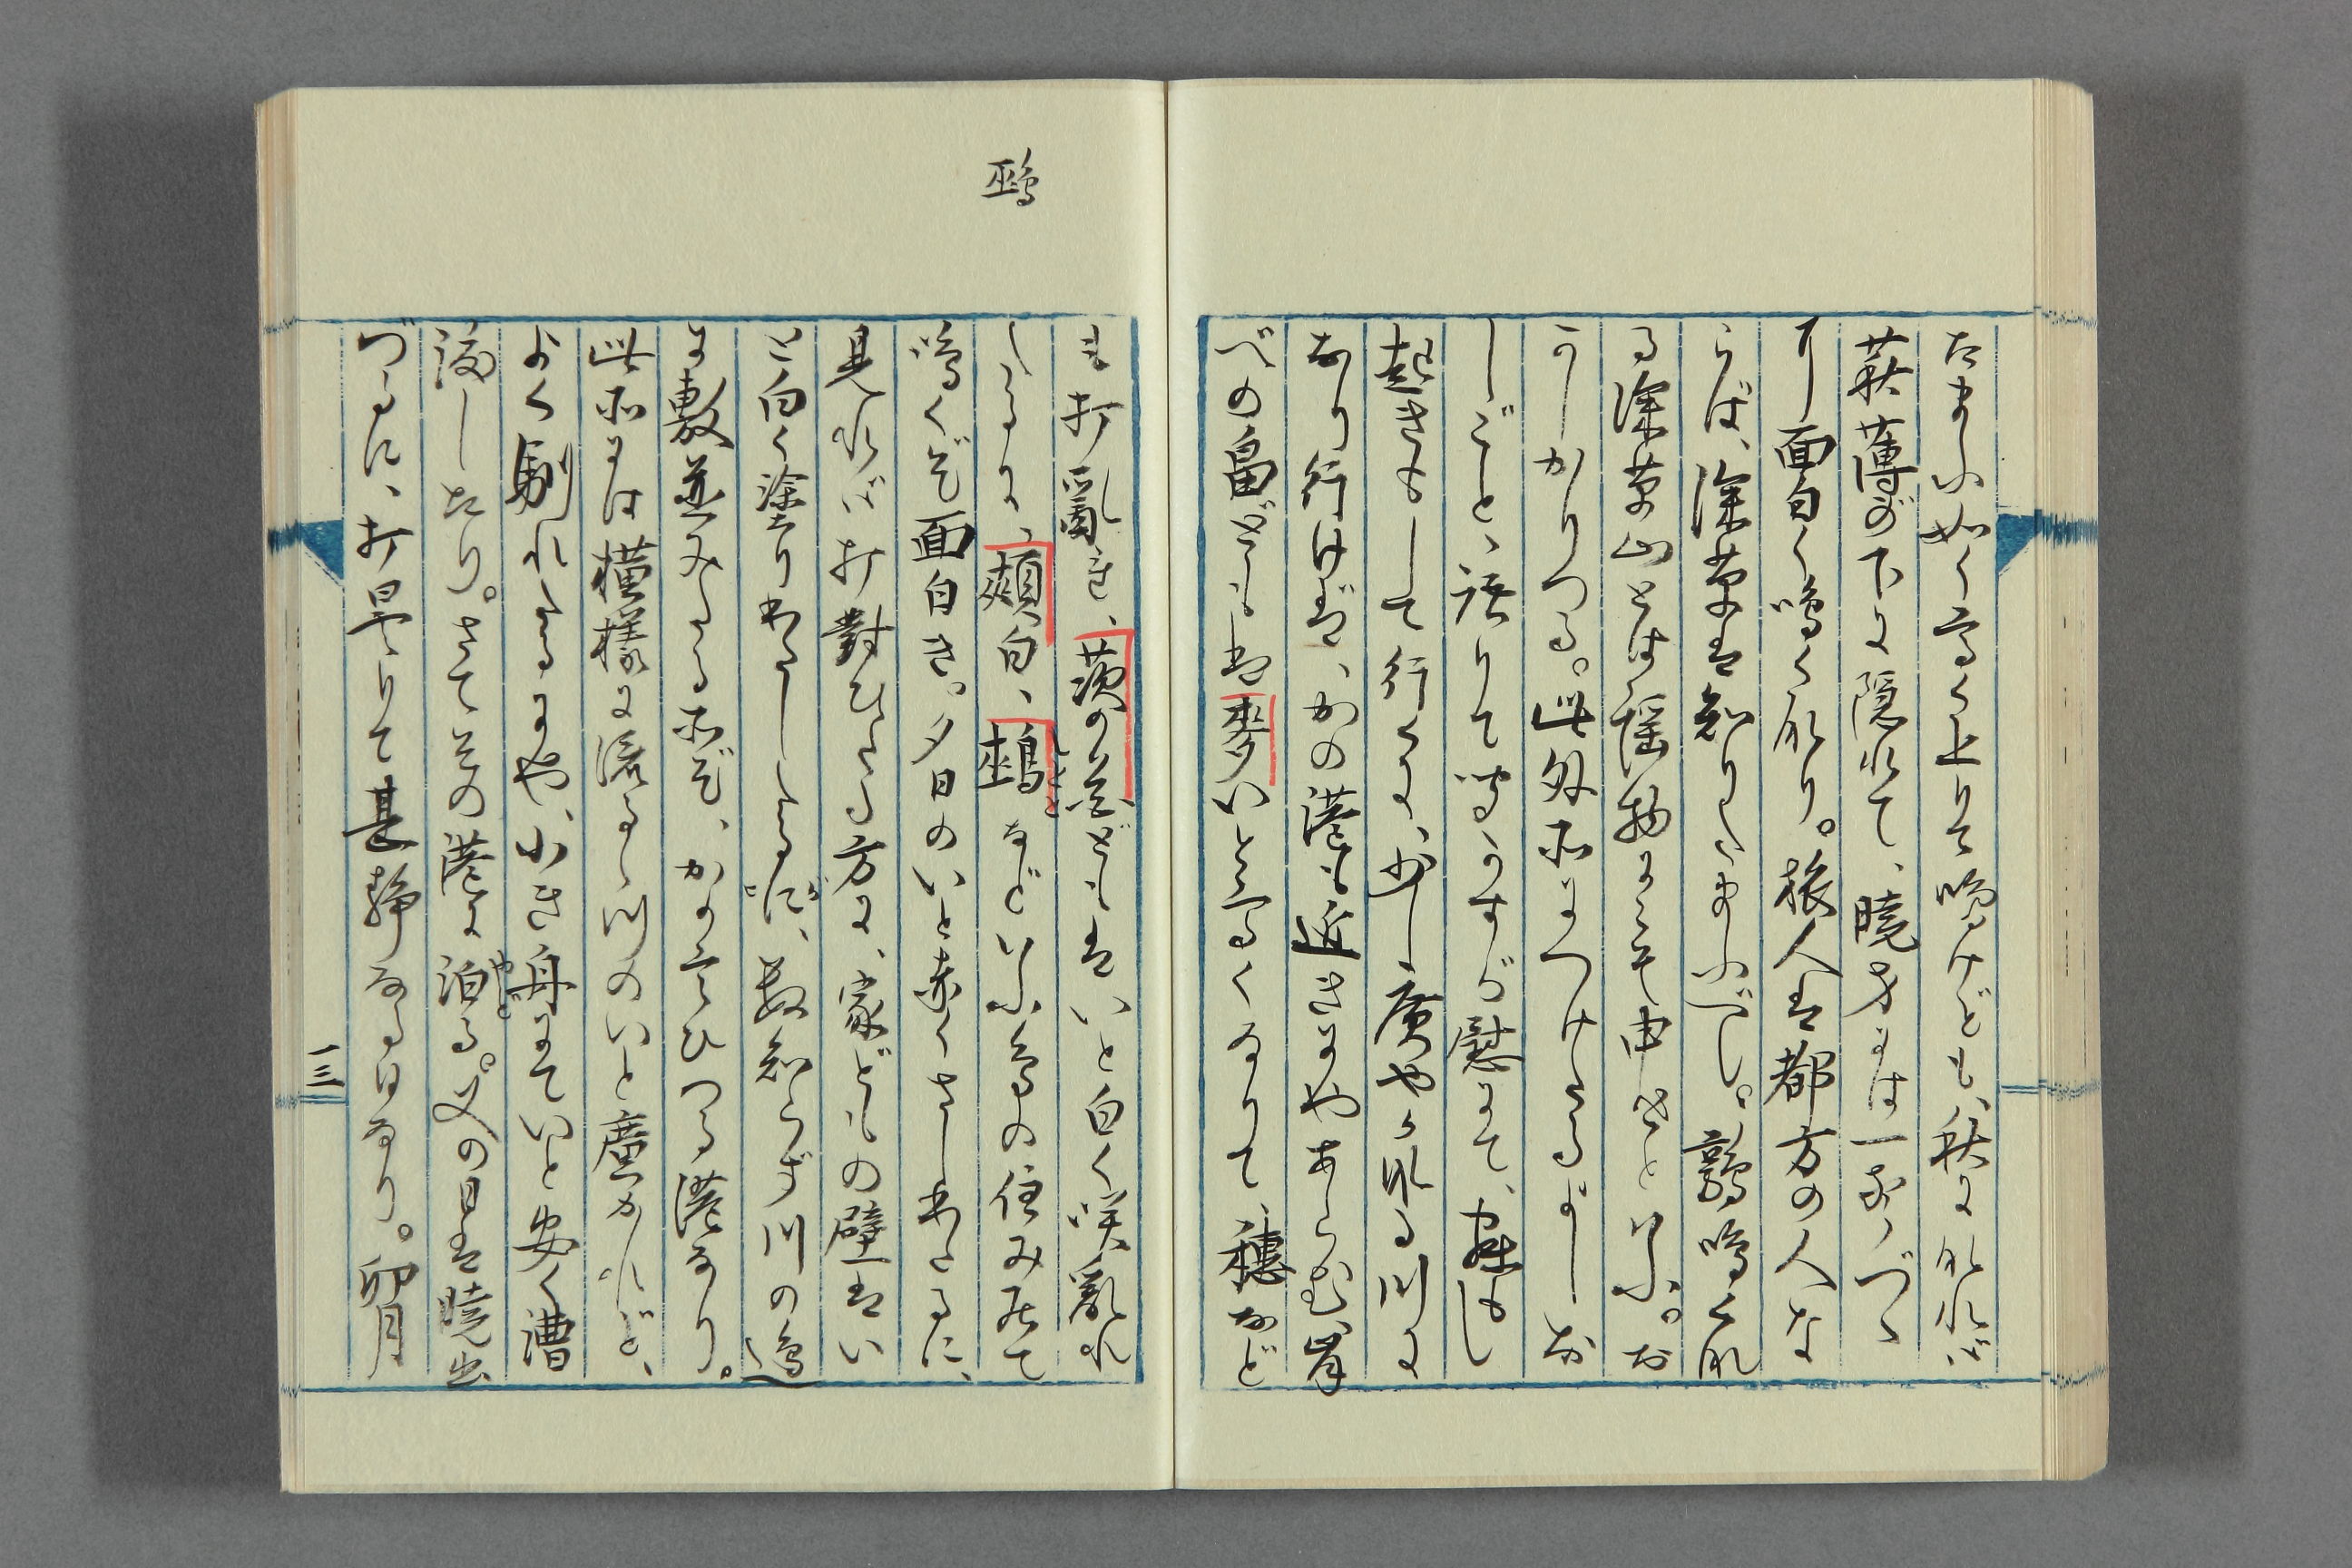 たまふ如く高く上りて鳴けども、秋になれれば
萩薄の下に隠れて、暁方には一声づゝ
いと面白く鳴く なり。旅人は都方の人な
らば、深草は知りたまふべし。鶉鳴くな
る深草山とは謡物にこそ申せといふ。お
かしかりつる。此処につけたる
しごと、語りて聞かすが慰にて、
起きもして行くに、少し広やかなる川に
なり行けば、かの港も近きにやあらむ、岸
べの畠どもは麥いと高くなりて、穂など
も打亂れ、茨の花どもはいと白く咲亂れ
たるに、頰白、鵐などいふ鳥の住み居て
鳴くぞ面白き。夕日のいと赤くさしわたるに、
見れば打對ひたる方に、家どもの壁はい
と白く塗りわたしたるが、数知らず川の邊
に敷並みたる所ぞ、かの言ひつる港なり。
此所には横様に流るゝ川のいと廣かれど、
よく馴れたるにや、小き舟にていと安く漕
渡したり。さてその港に泊る。又の日は暁出
づるに、打曇りて甚静なる日なり。卯月
鵐
しとゞ
やど
一三